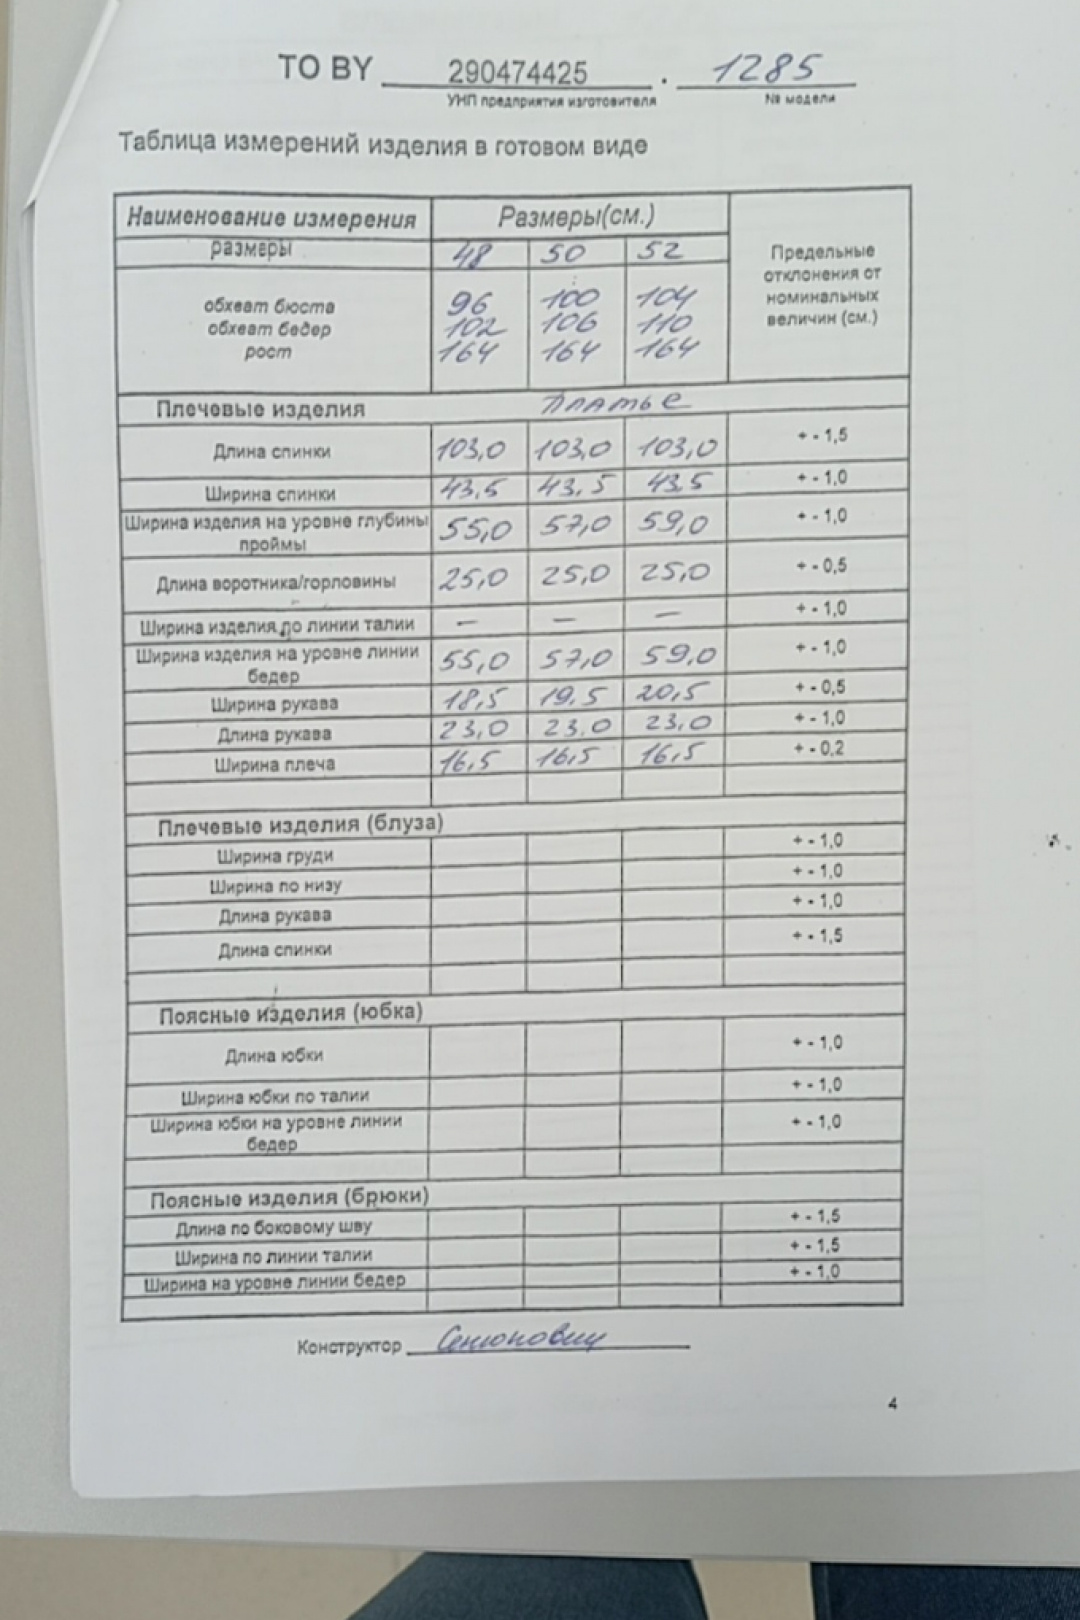 ТО BY 290474425 . 1285
УНП предприятия изготовителя № модели
Таблица измерений изделия в готовом виде
Наименование измерения Размеры(см.) Предельные отклонения от номинальных величин (см.)
размеры 48 50 52
обхват бюста 96 100 104
обхват бедер 102 106 110
рост 164 164 164
Плечевые изделия платье
Длина спинки 103,0 103,0 103,0 + - 1,5
Ширина спинки 43,5 43,5 43,5 + - 1,0
Ширина изделия на уровне глубины проймы 55,0 57,0 59,0 + - 1,0
Длина воротника/горловины 25,0 25,0 25,0 + - 0,5
Ширина изделия по линии талии — — — + - 1,0
Ширина изделия на уровне линии бедер 55,0 57,0 59,0 + - 1,0
Ширина рукава 18,5 19,5 20,5 + - 0,5
Длина рукава 23,0 23,0 23,0 + - 1,0
Ширина плеча 16,5 16,5 16,5 + - 0,2
Плечевые изделия (блуза)
Ширина груди + - 1,0
Ширина по низу + - 1,0
Длина рукава + - 1,0
Длина спинки + - 1,5
Поясные изделия (юбка)
Длина юбки + - 1,0
Ширина юбки по талии + - 1,0
Ширина юбки на уровне линии бедер + - 1,0
Поясные изделия (брюки)
Длина по боковому шву + - 1,5
Ширина по линии талии + - 1,5
Ширина на уровне линии бедер + - 1,0
Конструктор
4